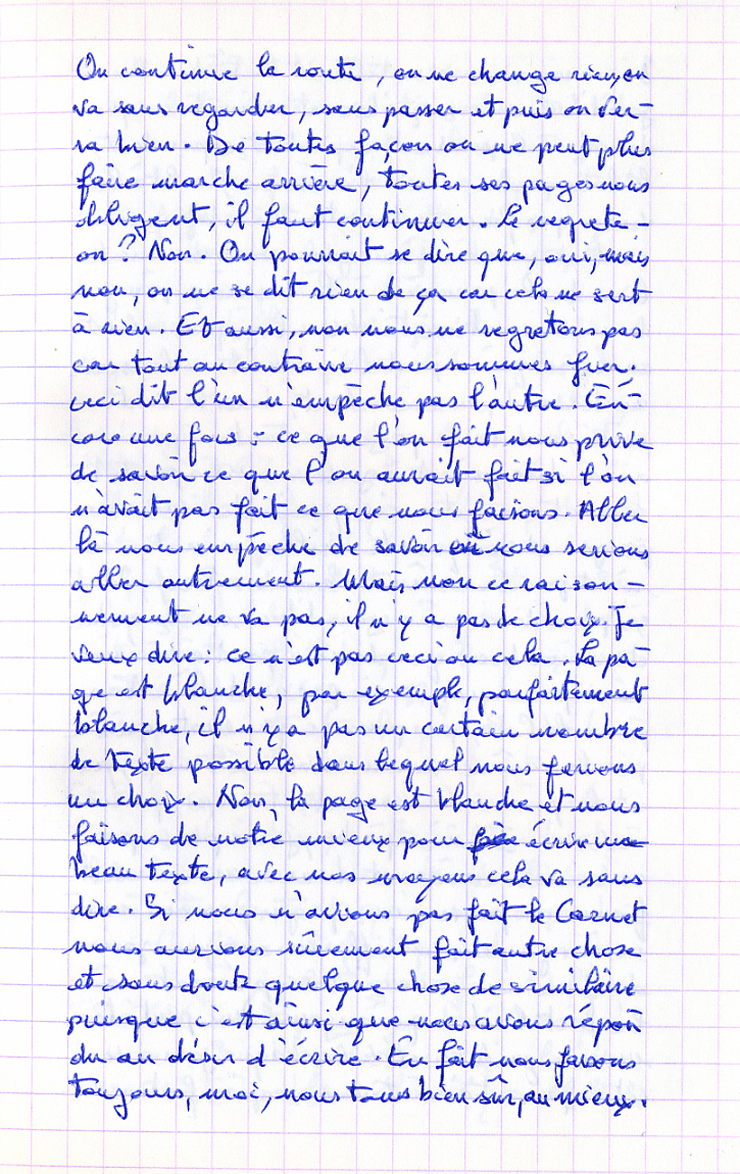 On continue la route, on ne change rien, on
va sans regarder, sans passer et puis on ver-
ra bien. De toutes façon on ne peut plus
faire marche arrière, toutes ses pages nous
obligent, il faut continuer. Le regrete-
on? Non. On pourrait se dire que, oui, mais
non, on ne se dit rien de ça car cela ne sert
à rien. Et aussi, non nous ne regretons pas
car tout au contraire nous sommes fier.
ceci dit l'un n'empêche pas l'autre. En-
core une fois : ce que l'on fait nous prive
de savoir ce que l'on aurait fait si l'on
n'avait pas fait ce que nous faisons. Aller
là nous empêche de savoir où nous serions
aller autrement. Mais non ce raison-
nement ne va pas, il n'y a pas de choix. Je
veux dire : ce n'est pas ceci ou cela. La pa-
ge est blanche, par exemple, parfaitement
blanche, il n'y a pas un certain nombre
de texte possible dans lequel nous ferions
un choix. Non, la page est blanche et nous
faisons de notre mieux pour écrire un
beau texte, avec nos moyens cela va sans
dire. Si nous n'avions pas fait le Carnet
nous aurions sûrement fait autre chose
et sans doute quelque chose de similaire
puisque c'est ainsi que nous avons répon
du au désir d'écrire. En fait nous faisons
toujours, moi, nous tous bien sûr, au mieux.